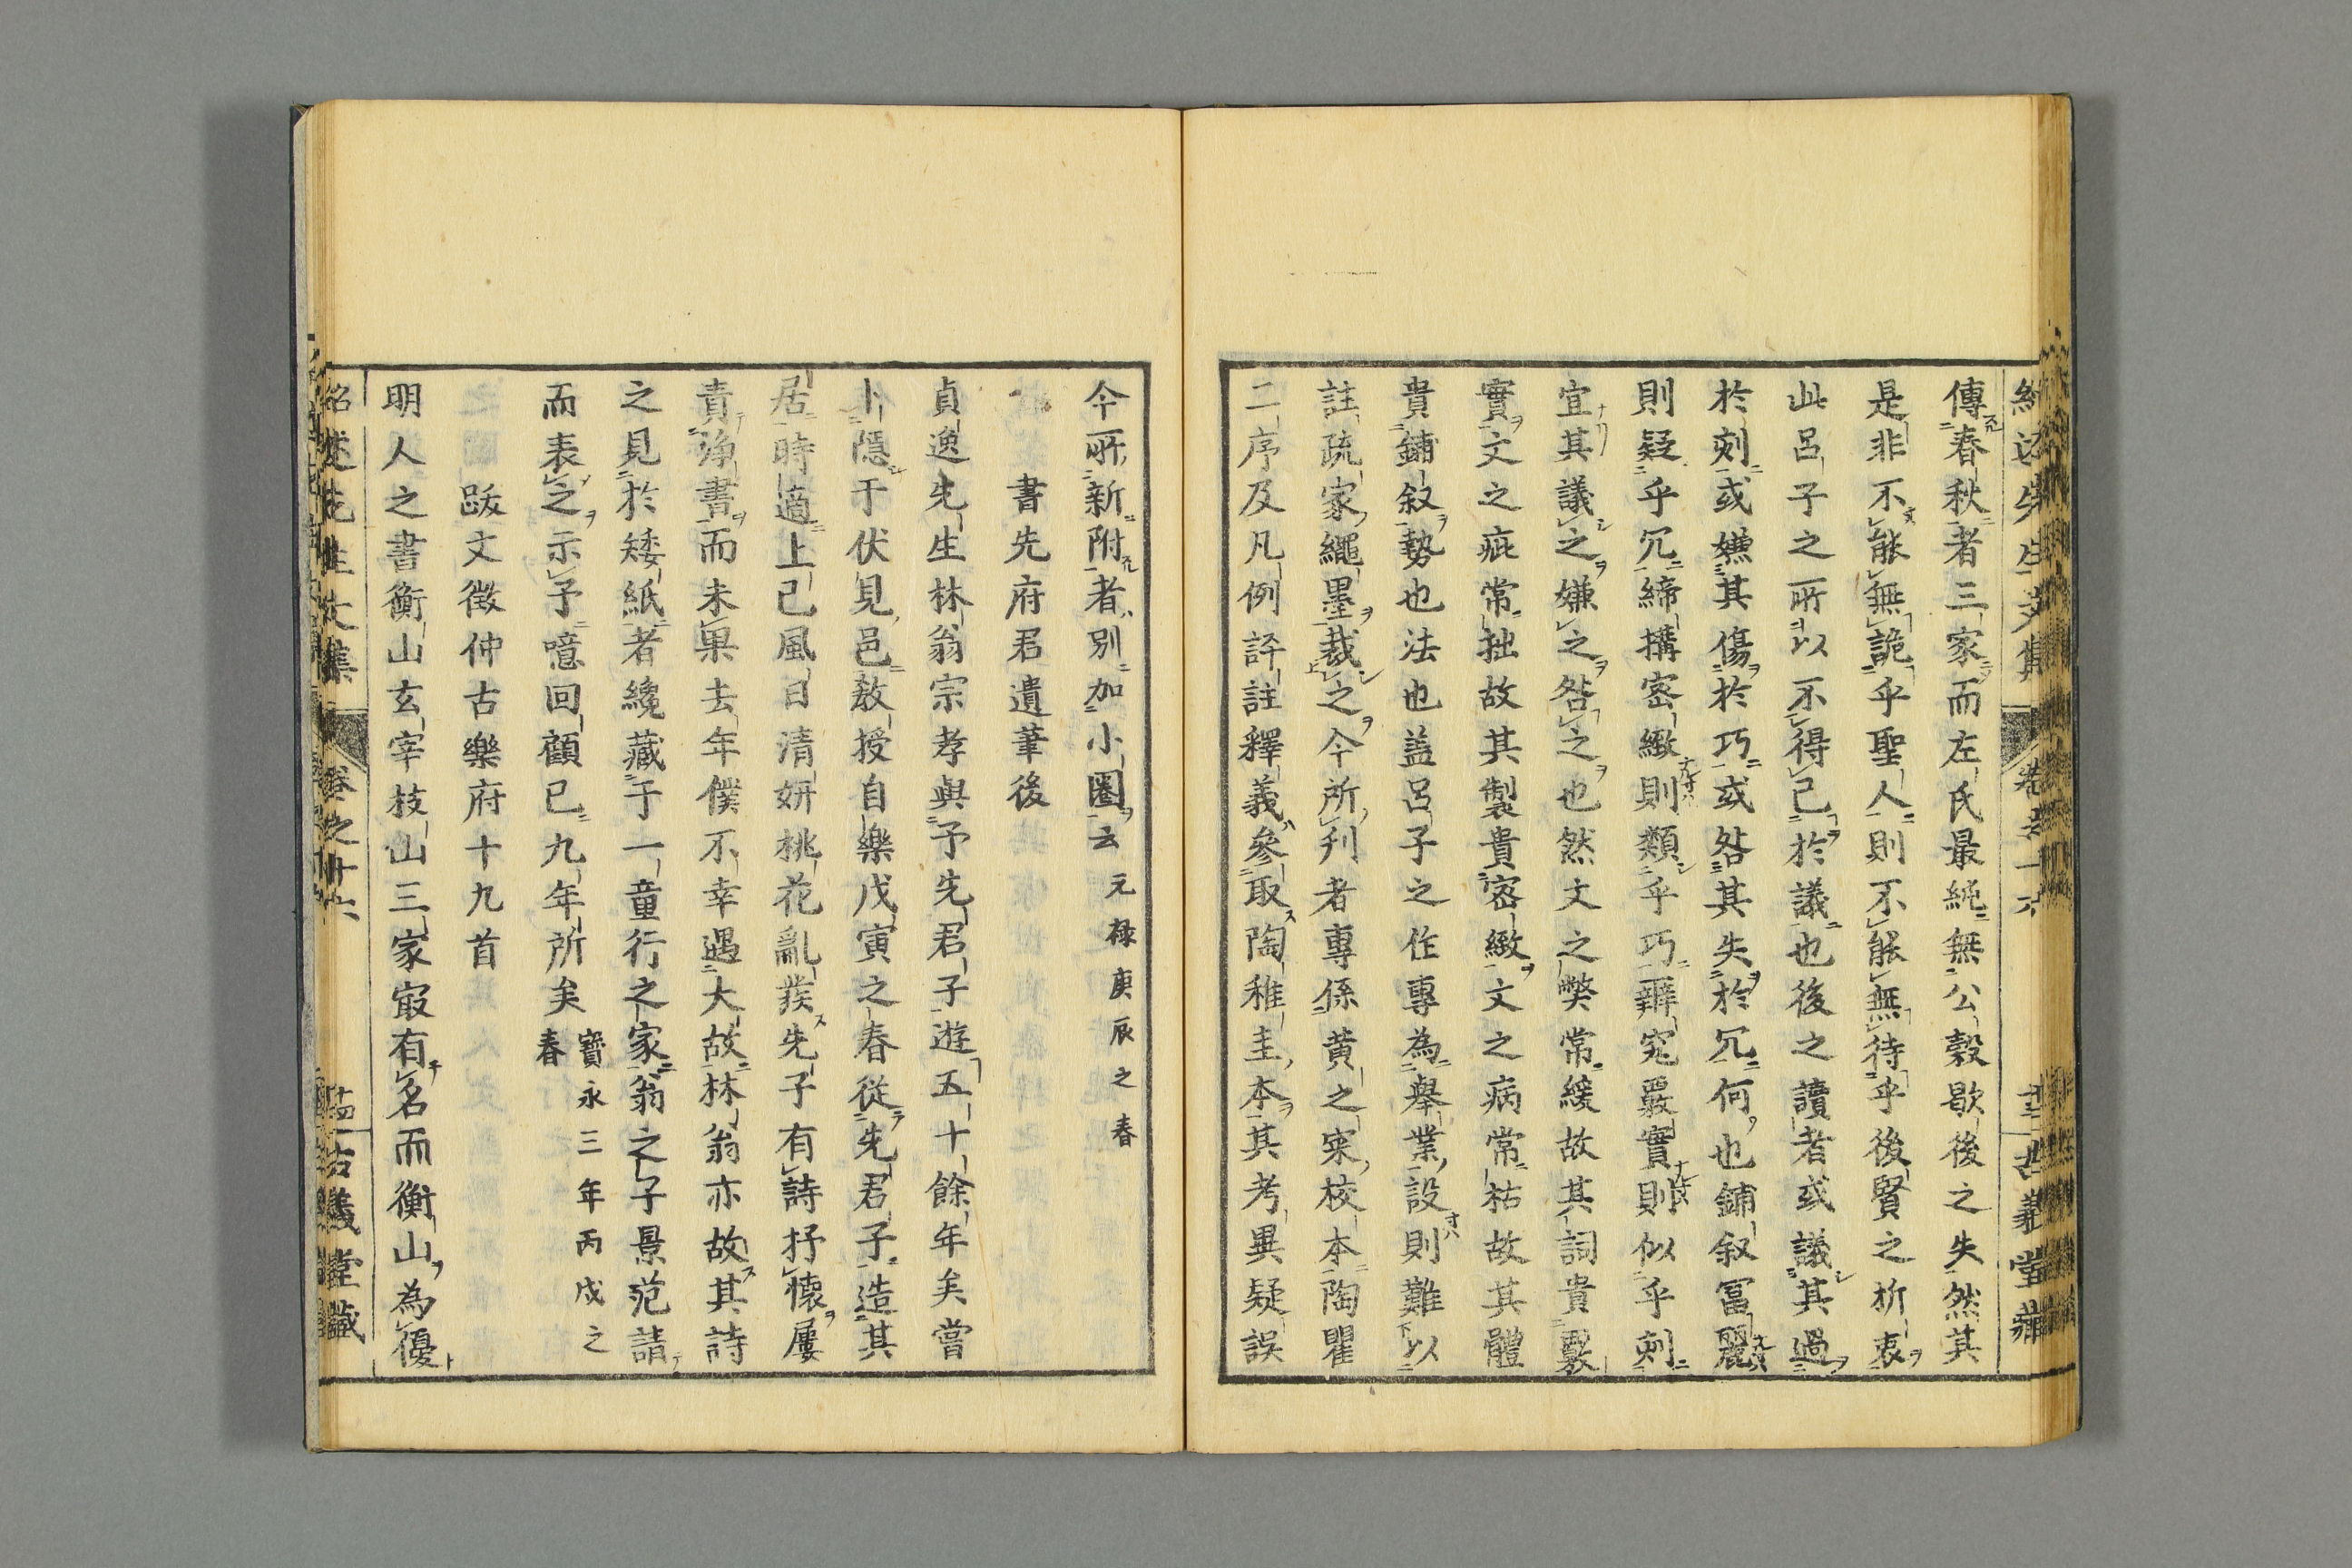 傳春秋者三家而左氏最純無公穀歇後之失然其
是非不能無詭乎聖人則不能無待乎後賢之折衷
此呂子之所以不得已於議也後之讀者或議其過
於刻或嫌其傷於巧或咎其失於冗何也鋪叙冨麗
則疑乎冗締搆密緻則類乎巧辨究覈實則似乎刻
宜其議之嫌之咎之也然文之弊常緩故其詞貴覈
實文之疵常拙故其製貴密緻文之病常枯故其體
貴鋪叙勢也法也盖呂子之作專為舉業設則難以
註疏家繩墨裁之今所刋者專係黄之寀校本陶瞿
二序及凡例評註釋義參取陶稚圭本其考異疑誤
今所新附者別加小圈云元禄庚辰之春
書先府君遺筆後
貞逸先生林翁宗孝與予先君子遊五十餘年矣嘗
卜隱于伏見邑教授自樂戊寅之春從先君子造其
居時適上已風日清妍桃花亂䔇先子有詩抒懷屢
責淨書而未果去年僕不幸遇大故林翁亦故其詩
之見於矮紙者纔藏于一童行之家翁之子景范請
而表之示予噫回顧已九年所矣寶永三年丙戌之
春
跋文徵仲古樂府十九首
明人之書衡山玄宰枝山三家㝡有名而衡山為優
紹述先生文集
卷之十六
古義堂藏